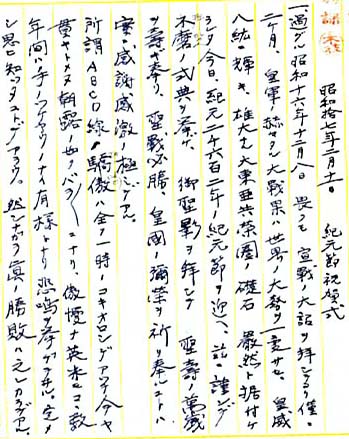 昭和拾七年二月十一日 紀元節祝賀式
一、過グル昭和十六年十二月八日 畏クモ 宣戦ノ大詔ヲ拝シテヨリ僅々
二ヶ月、皇軍ノ赫々タル大戦果ハ世界ノ大勢ヲ一変サセ、皇威
八紘ニ輝キ、雄大ナル大東亜共栄圏ノ礎石 厳然ト据付ケ
ラレタ今日、紀元二千六百二年ノ紀元節ヲ迎ヘ、茲ニ謹ンデ
不磨ノ式典ヲ挙ゲ 御聖影ヲ拝シテ 聖寿ノ萬歳
ヲ寿ギ奉リ、聖戦必勝、皇国ノ彌栄ヲ祈リ奉ルコトハ
実ニ感謝感激ノ極ミデアル。
所謂ABCD線ノ驕傲ハ全ク一時ノコキオロシデアツテ今ヤ
貫キトメヌ朝露ノ如クバラ〱ニナリ、傲慢ナ英米モココ数
年間ハ手ノツケヤウノナイ有様トナリ 悲鳴ヲ挙ゲタル、定メ
シ思ヒ知ツタコトデアラウ。然シナガラ真ノ勝敗ハコレカラデアル。